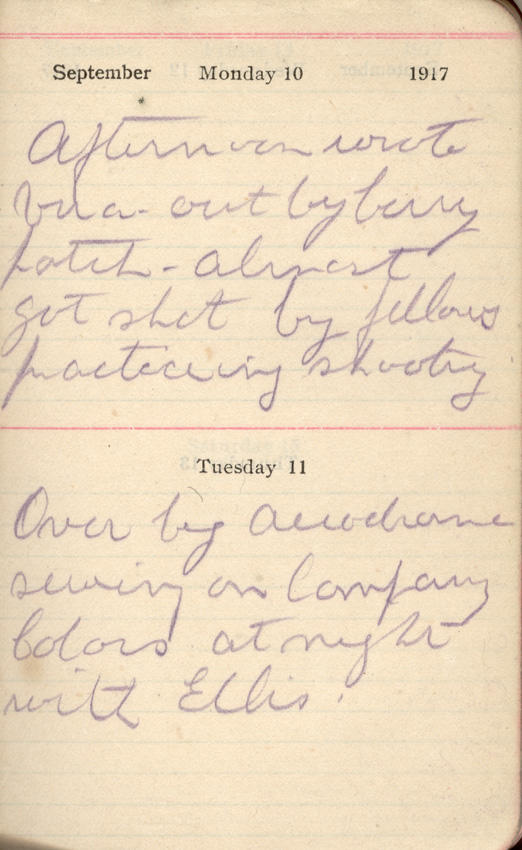 September Monday 10 1917
Afternoon wrote
out by berry
patch - almost
got shot by fellows
practiceing shooting
Tuesday 11
Over by aerodrome
sewing on Company
Colors at night
with Ellis.